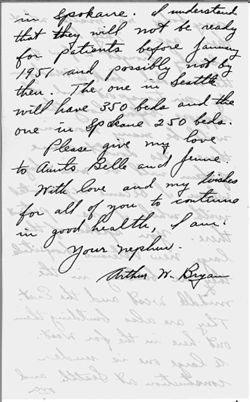 in Spokane. I understand
that they will not be ready
for patients before January
1951 and possibly not by
then. The one in Seattle
will have 350 beds and the
one in Spokane 250 beds.
Please give my love
to Aunts Belle and Jennie.
With love and my wishes
for all of you to continue
in good health, I am:
Your nephew.
Arthur W. Bryan